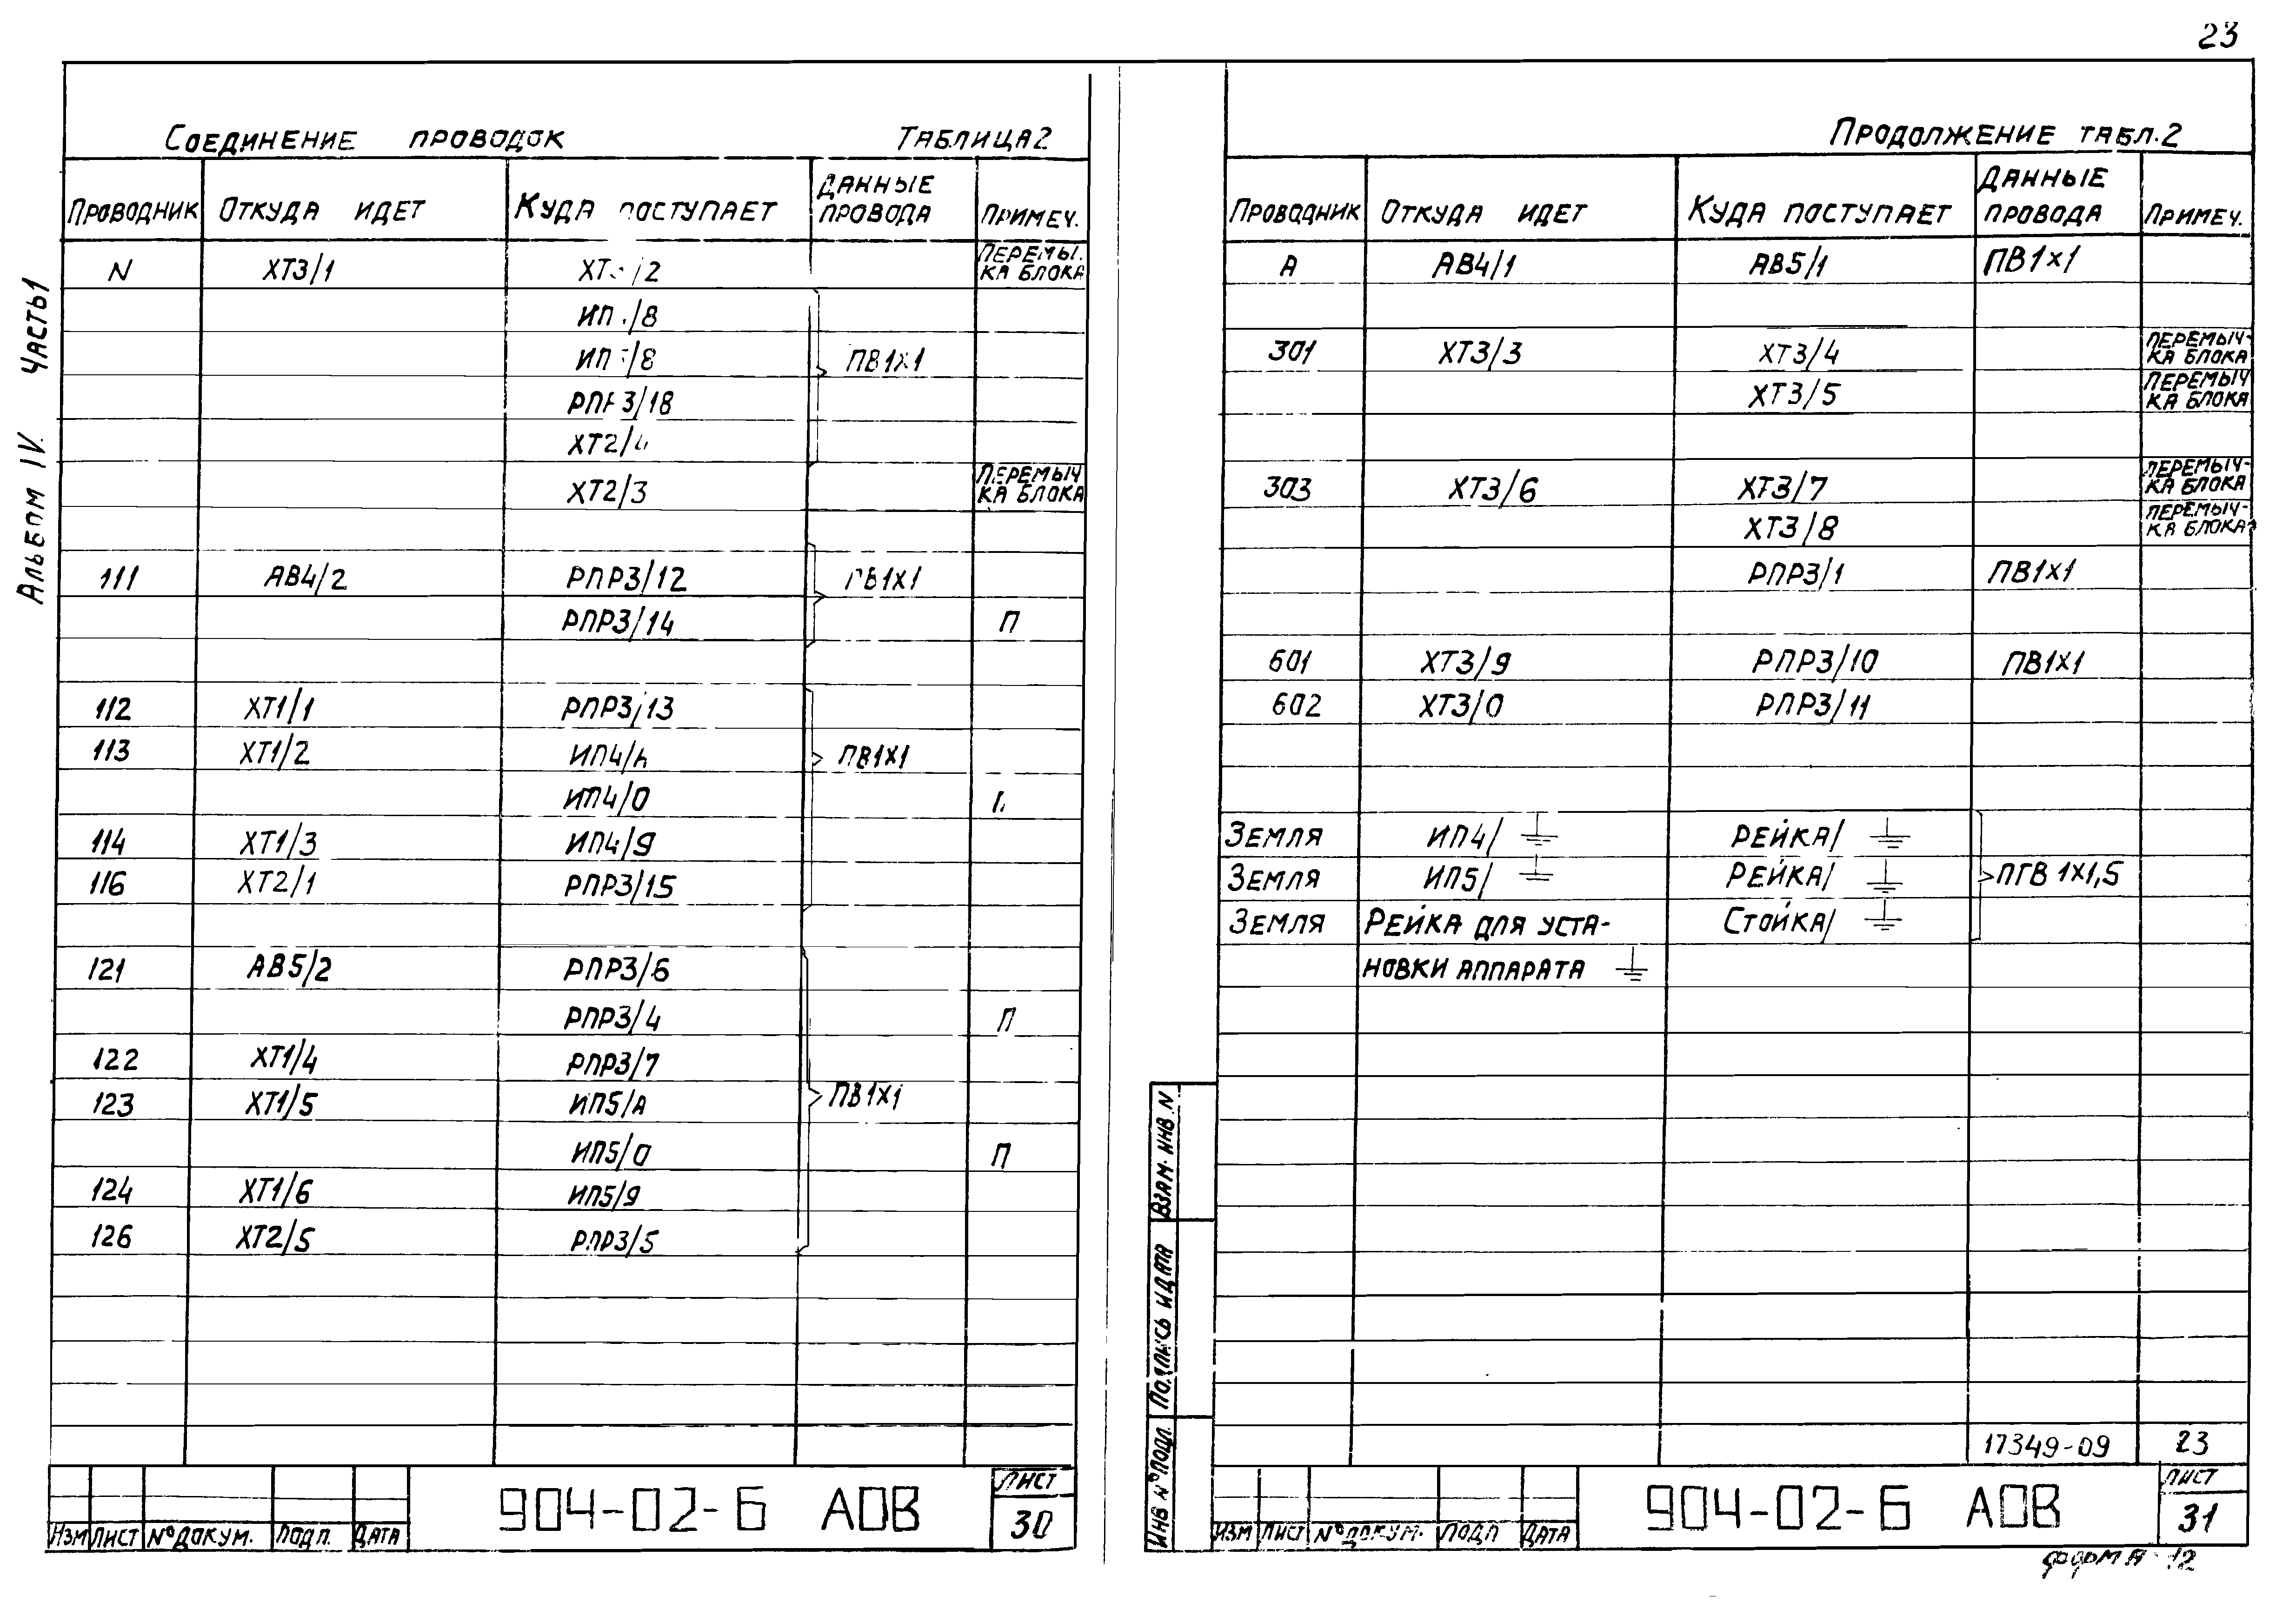 23
Альбом IV. Часть 1
Соединение проводок Таблица 2
Проводник Откуда идет Куда поступает Данные провода Примеч.
N ХТ3/1 /2 Перемы. ка блока
ИП /8
ИП /8 ПВ1х1
РПР3/18
ХТ2/4
ХТ2/3 Перемыч ка блока
111 АВ4/2 РПР3/12 ПВ1х1
РПР3/14 П
112 ХТ1/1 РПР3/13
113 ХТ1/2 ИП4/А ПВ1х1
ИП4/0 П
114 ХТ1/3 ИП4/9
116 ХТ2/1 РПР3/15
121 АВ5/2 РПР3/6
РПР3/4 П
122 ХТ1/4 РПР3/7
123 ХТ1/5 ИП5/А ПВ1х1
ИП5/0 П
124 ХТ1/6 ИП5/9
126 ХТ2/5 РПР3/5
Изм Лист № докум. Подп. Дата
904-02-6 АОВ
Лист
30
Продолжение табл. 2
Проводник Откуда идет Куда поступает Данные провода Примеч.
А АВ4/1 АВ5/1 ПВ1х1
301 ХТ3/3 ХТ3/4 Перемыч- ка блока
ХТ3/5 Перемыч ка блока
303 ХТ3/6 ХТ3/7 Перемыч- ка блока
ХТ3/8 Перемыч- ка блока
РПР3/1 ПВ1х1
601 ХТ3/9 РПР3/10 ПВ1х1
602 ХТ3/0 РПР3/11
Земля ИП4/ Рейка/
Земля ИП5/ Рейка/ ПГВ 1х1,5
Земля Рейка для уста- Стойка/
новки аппарата
17349-09 23
Взам. инв. N
Подпись и дата
Инв № подл.
Изм Лист № докум. Подп Дата
904-02-6 АОВ
Лист
31
формА 12